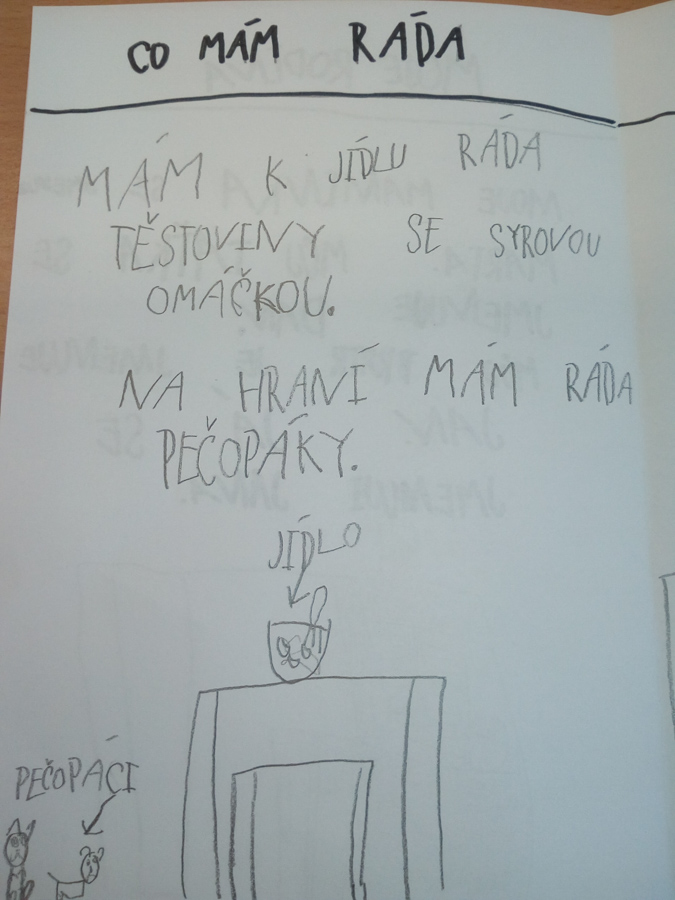 CO MÁM RÁDA
MÁM K JÍDLU RÁDA
TĚSTOVINY SE SYROVOU
OMÁČKOU.
NA HRANÍ MÁM RÁDA
PEČOPÁKY.
JÍDLO
PEČOPÁCI